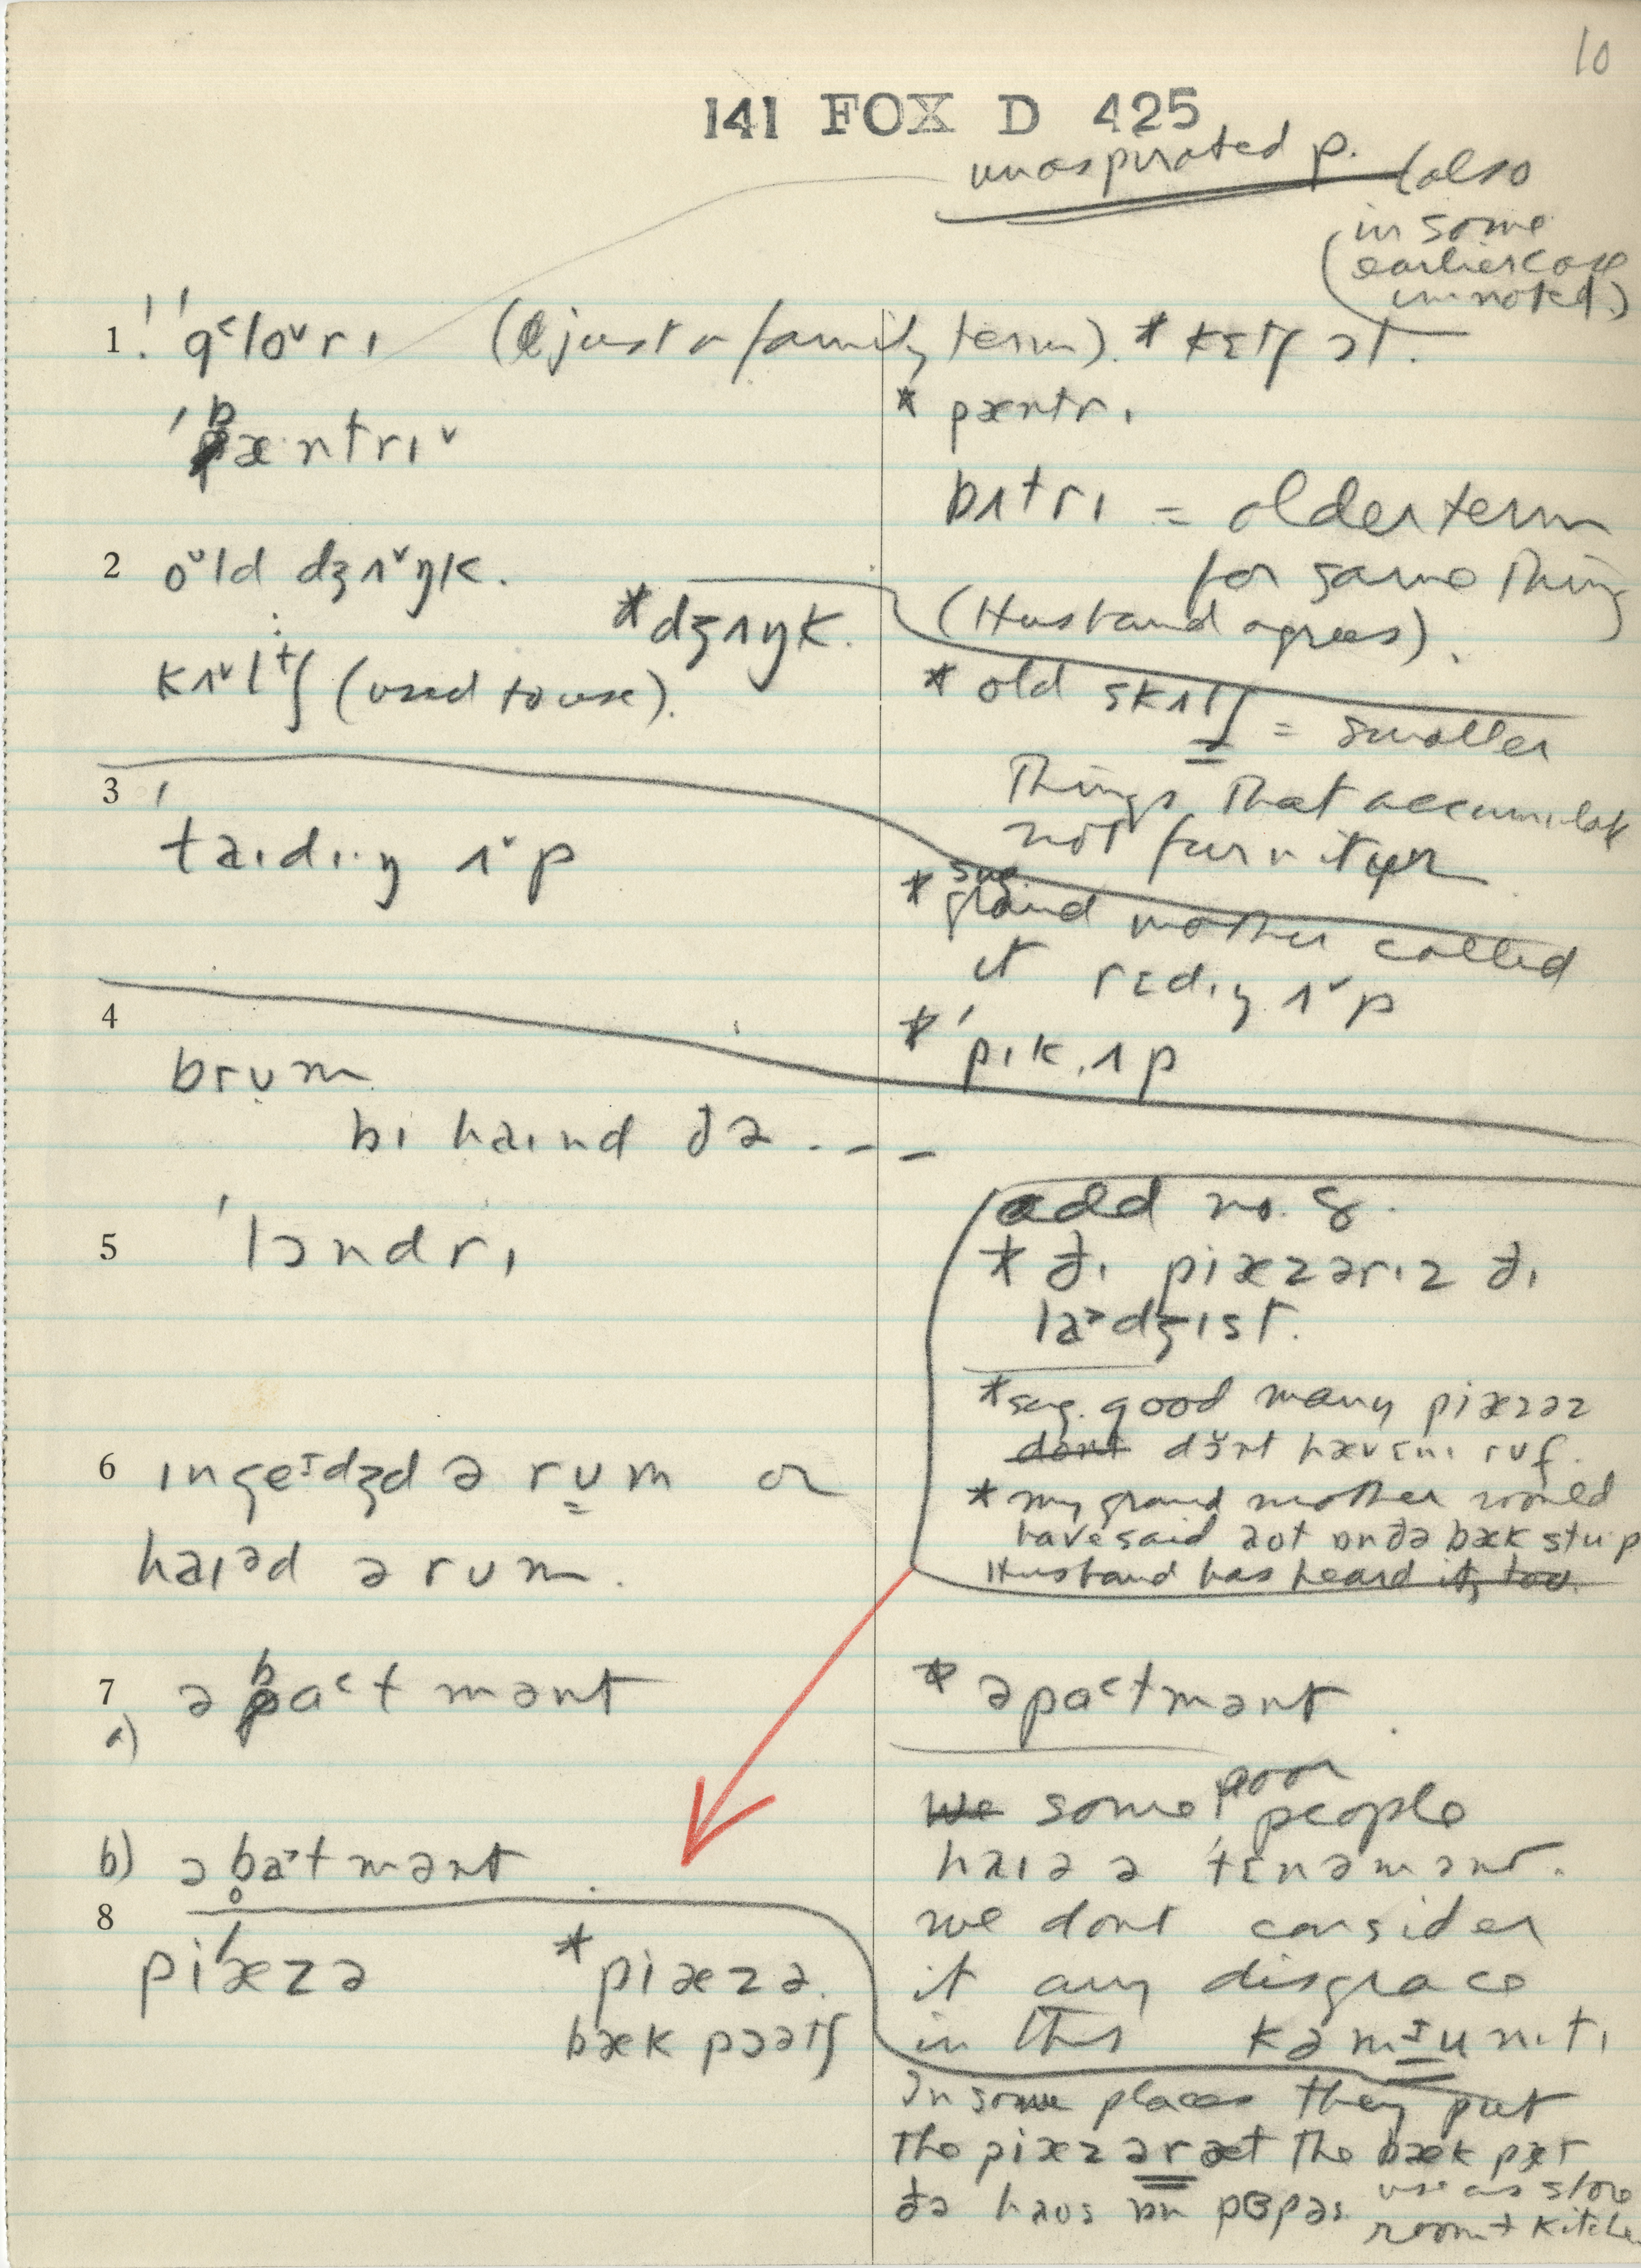 10
141 FOX D 425
unaspirated p. (also
in some
earlier case
unnoted)
1. 'glorɪ (just a family term). * kɛtʃ ɔt.
'pæntrɪ
* pæntrɪ
bʌtrɪ = older term
for same thing
(Husband agrees).
2 old dʒʌŋk.
* dʒʌŋk.
kʌltʃ (used to use).
* old skʌtʃ = smaller
things that accumulate
not furniture
3 'taɪdɪŋ ʌp
* grand mother called
it rɛdɪŋ ʌp
* 'pɪk ʌp
4 brum
bɪhaɪnd ðə - - -
5 'lɔndrɪ
add no. 8.
* ðɪ piæzərɪz ðɪ
la>dʒɪst.
* say good many piæzəz
dont dont hævɛnɪ ruf.
* my grand mother would
have said aot ɒn ðə bæk stup
Husband has heard it, too.
6 ɪngeɪdʒd ə rum or
haɪəd ə rum.
7 a) əpa<tmənt
* əpa<tmənt.
We some poor people
haɪə ə 'tɛnəmənt.
we dont consider
it any disgrace
in this kəmɪunɪtɪ
b) əba>tmənt.
8 pi'æzə
* piæzə.
bæk pɔətʃ
In some places they put
the piæzər æt the bæk pət
ðə haus ɒn
use as store
room + kitchen